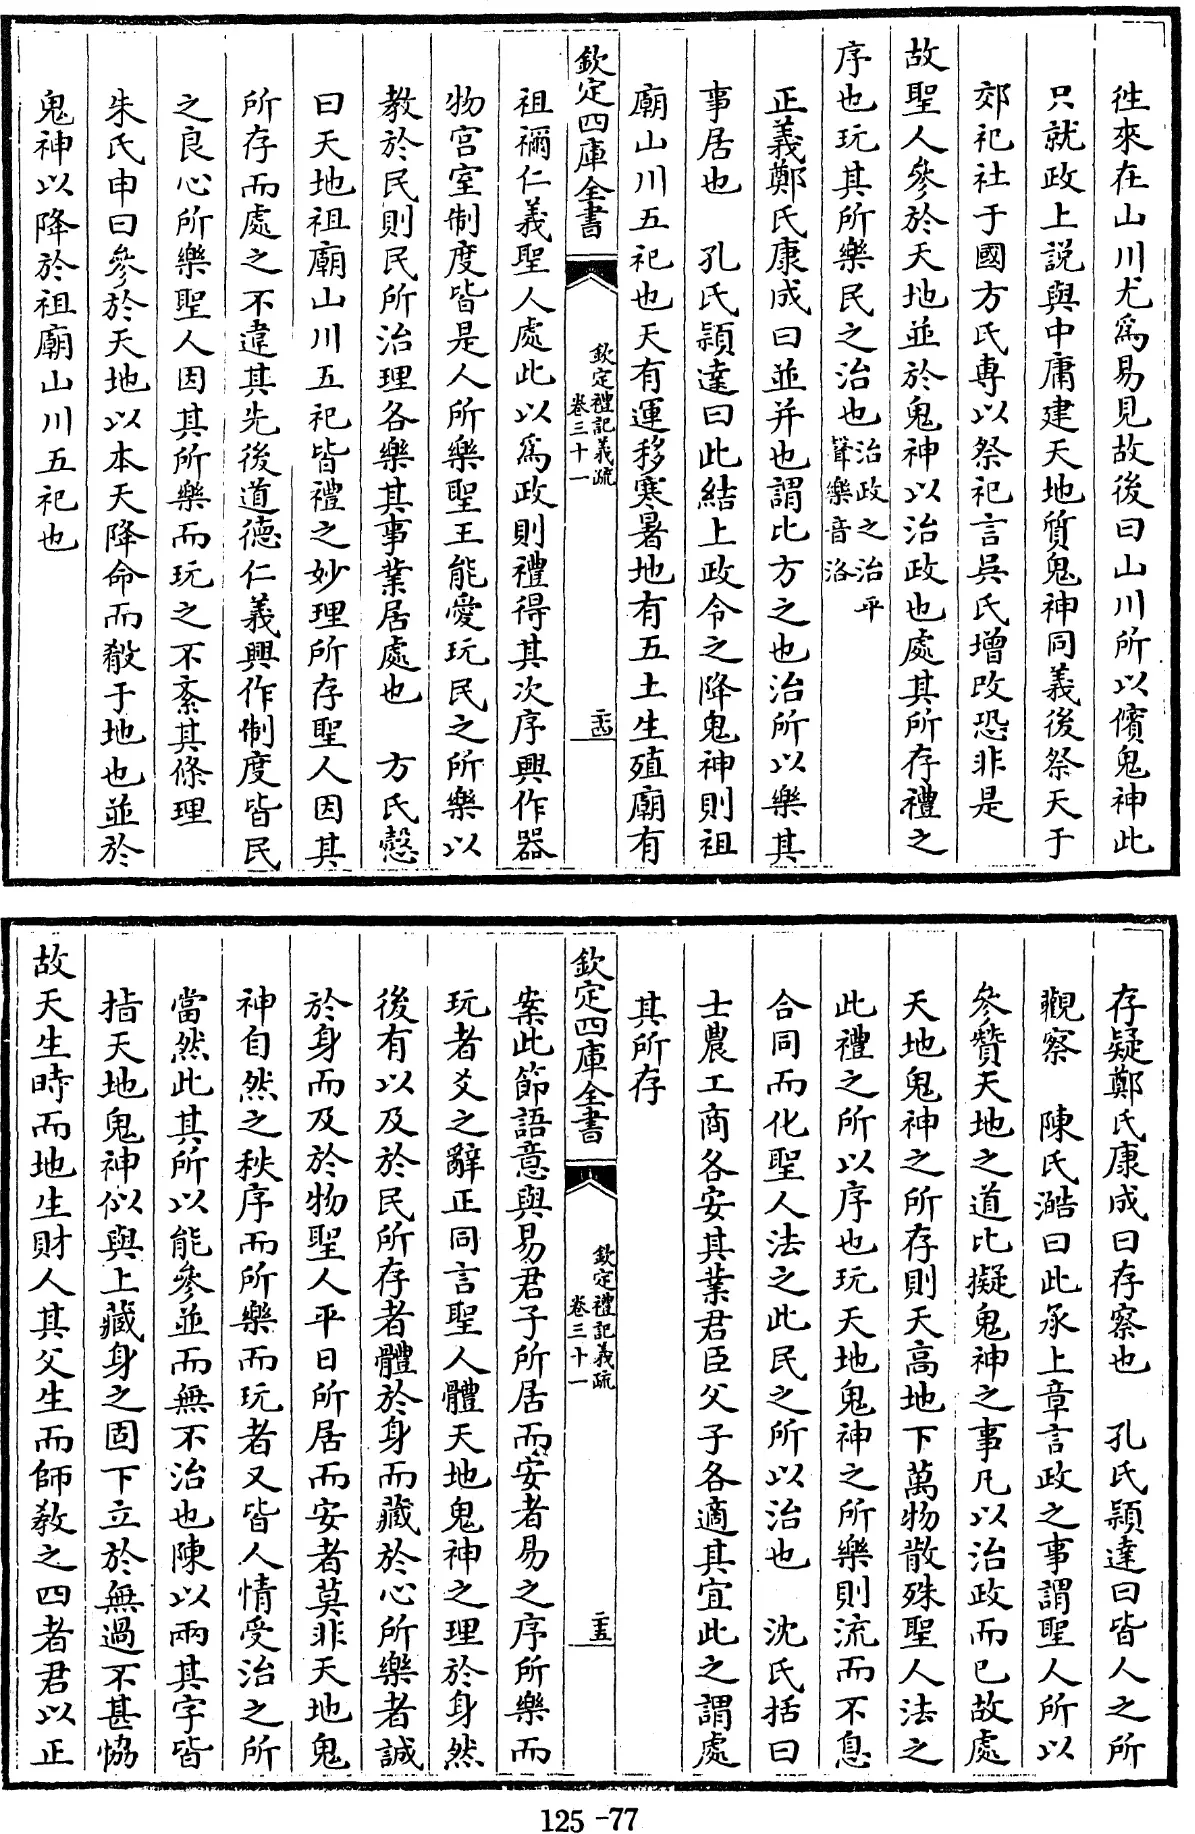 徃來在山川尤爲易見故後曰山川所以儐鬼神此
只就政上説與中庸建天地質鬼神同義後祭天于
郊祀社于國方氏專以祭祀言吳氏增改恐非是
故聖人參於天地並於鬼神以治政也處其所存禮之
序也玩其所樂民之治也治政之治平聲樂音洛
正義鄭氏康成曰並并也謂比方之也治所以樂其
事居也　孔氏穎達曰此結上政令之降鬼神則祖
廟山川五祀也天有運移寒暑地有五土生殖廟有
欽定四庫全書
欽定禮記義疏
卷三十一
二十四
祖禰仁義聖人處此以爲政則禮得其次序興作器
物宫室制度皆是人所樂聖王能愛玩民之所樂以
教於民則民所治理各樂其事業居處也　方氏慤
曰天地祖廟山川五祀皆禮之妙理所存聖人因其
所存而處之不違其先後道德仁義興作制度皆民
之良心所樂聖人因其所樂而玩之不紊其條理
朱氏申曰參於天地以本天降命而殽于地也並於
鬼神以降於祖廟山川五祀也
存疑鄭氏康成曰存察也　孔氏穎達曰皆人之所
觀察　陳氏澔曰此承上章言政之事謂聖人所以
參贊天地之道比擬鬼神之事凡以治政而已故處
天地鬼神之所存則天高地下萬物散殊聖人法之
此禮之所以序也玩天地鬼神之所樂則流而不息
合同而化聖人法之此民之所以治也　沈氏括曰
士農工商各安其業君臣父子各適其宜此之謂處
其所存
欽定四庫全書
欽定禮記義疏
卷三十一
二十五
案此節語意與易君子所居而安者易之序所樂而
玩者爻之辭正同言聖人體天地鬼神之理於身然
後有以及於民所存者體於身而藏於心所樂者誠
於身而及於物聖人平日所居而安者莫非天地鬼
神自然之秩序而所樂而玩者又皆人情受治之所
當然此其所以能參並而無不治也陳以兩其字皆
指天地鬼神似與上藏身之固下立於無過不甚恊
故天生時而地生財人其父生而師教之四者君以正
125-77